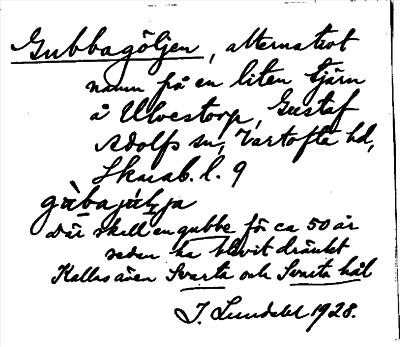 Gubbagöljen, alternativt
namn på en liten tjärn
å Ulvestorp, Gustaf
Adolfs sn, Vartofta hd,
Skarab. l. 9
gùbajøl̨ja
där skall en gubbe för ca 50 år
sedan ha blivit dränkt
Kallas även Svarta och Svarta hål
J. Lundahl 1928.